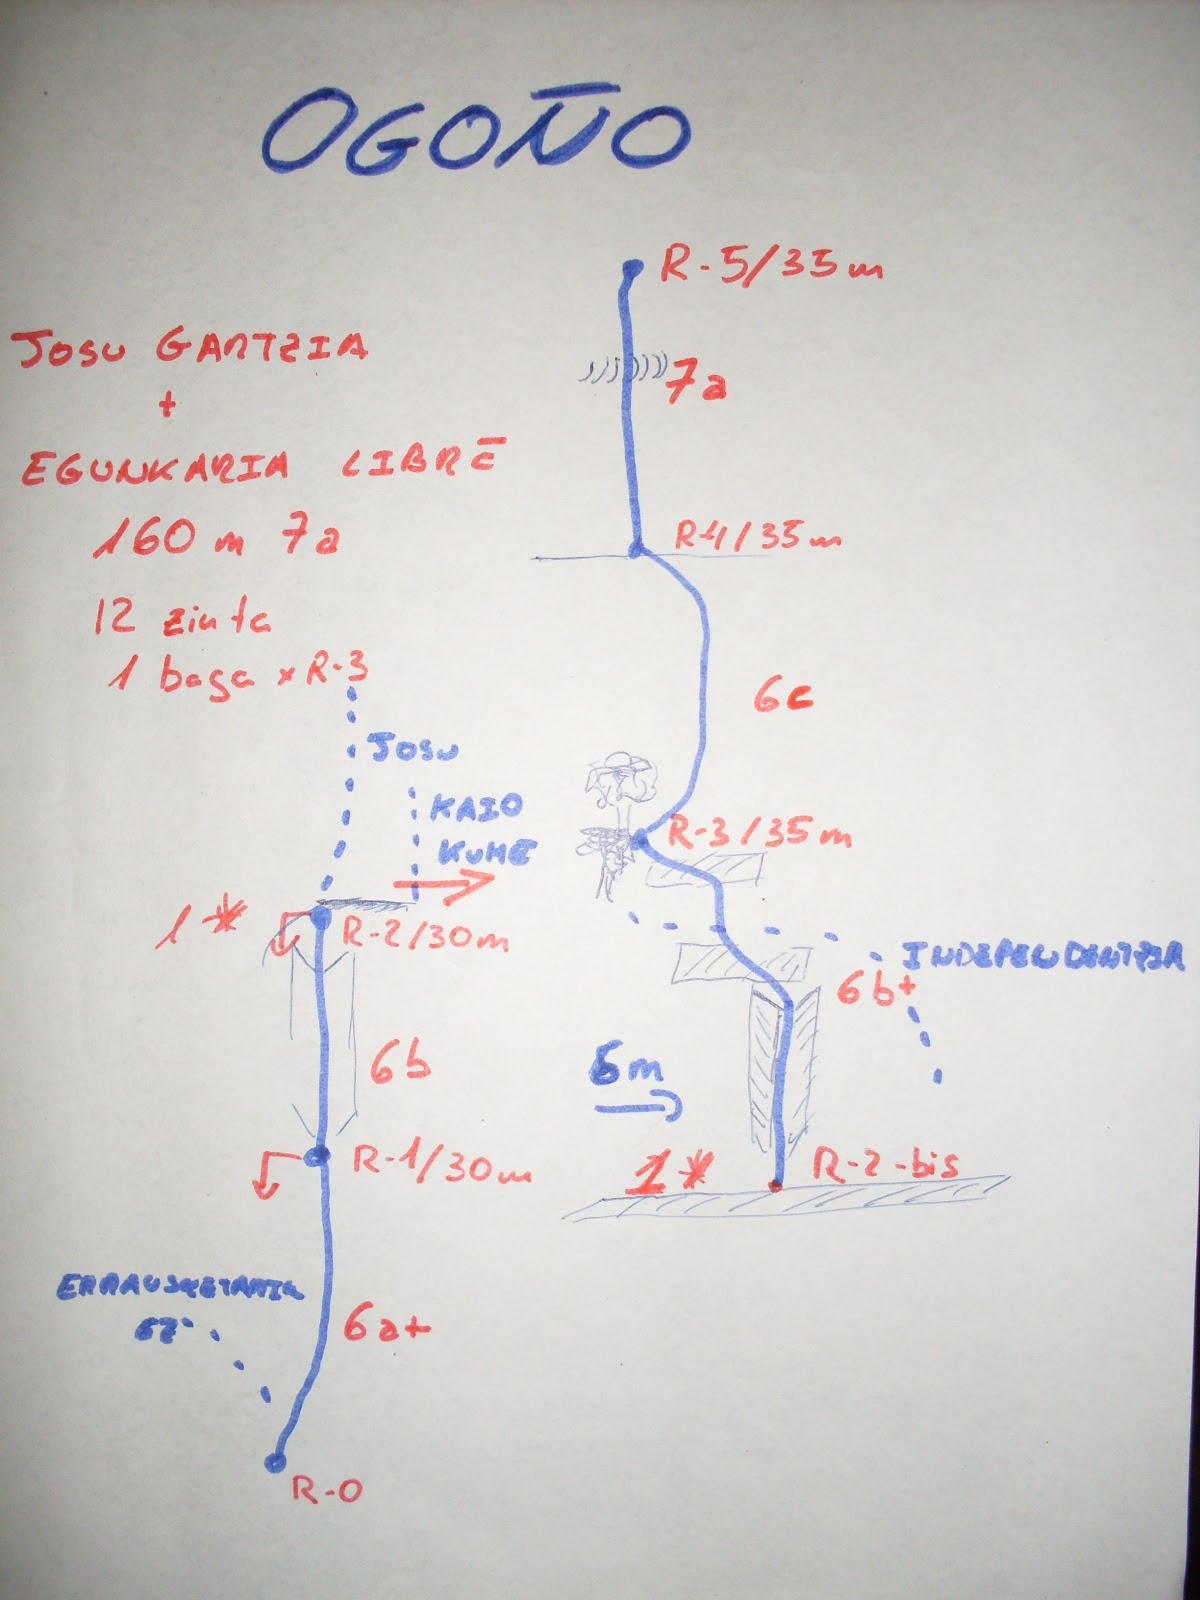 OGOÑO
JOSU GARTZIA
+
EGUNKARIA LIBRE
160 m 7a
12 zinta
1 baga x R-3
JOSU
KAIO
KUME
1*
R-2/30m
6b
R-1/30m
6a+
R-0
R-5/35m
7a
R-4/35m
6c
R-3/35m
INDEPENDENTZIA
6b+
5m
1*
R-2-bis